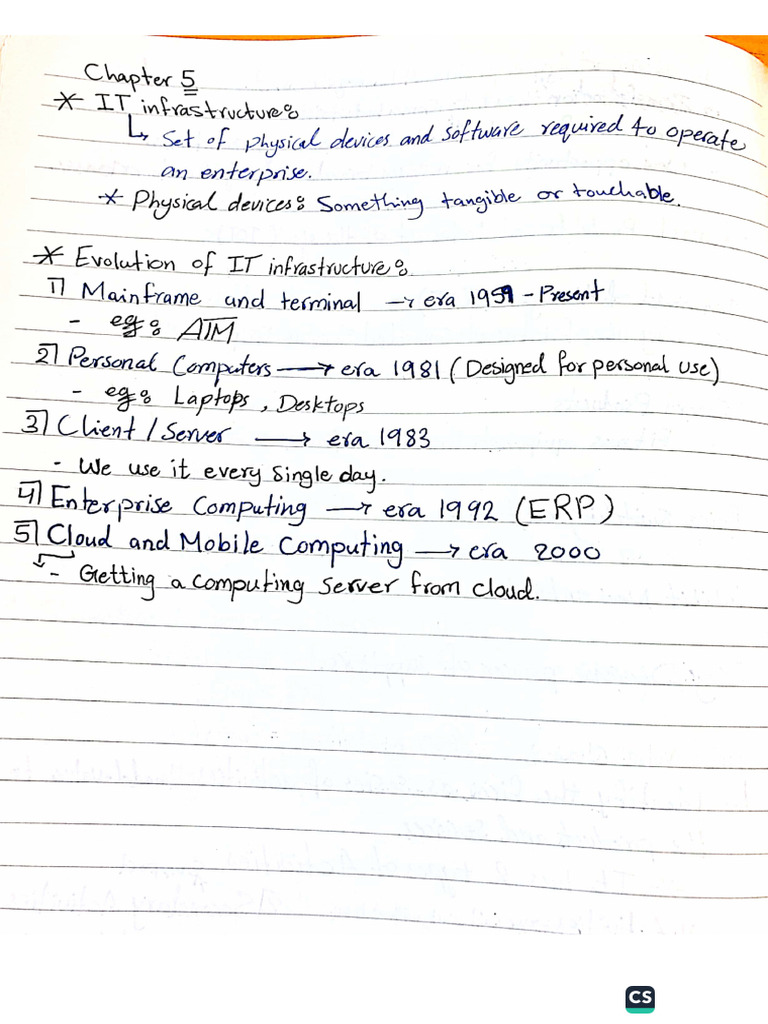 Chapter 5
* IT infrastructure:
↳ Set of physical devices and software required to operate
an enterprise.
* Physical devices: Something tangible or touchable.
* Evolution of IT infrastructure:
1) Mainframe and terminal → era 1959 - Present
- eg: ATM
2) Personal Computers → era 1981 (Designed for personal use)
- eg: Laptops, Desktops
3) Client / Server → era 1983
- We use it every single day.
4) Enterprise Computing → era 1992 (ERP)
5) Cloud and Mobile Computing → era 2000
- Getting a computing server from cloud.
CS